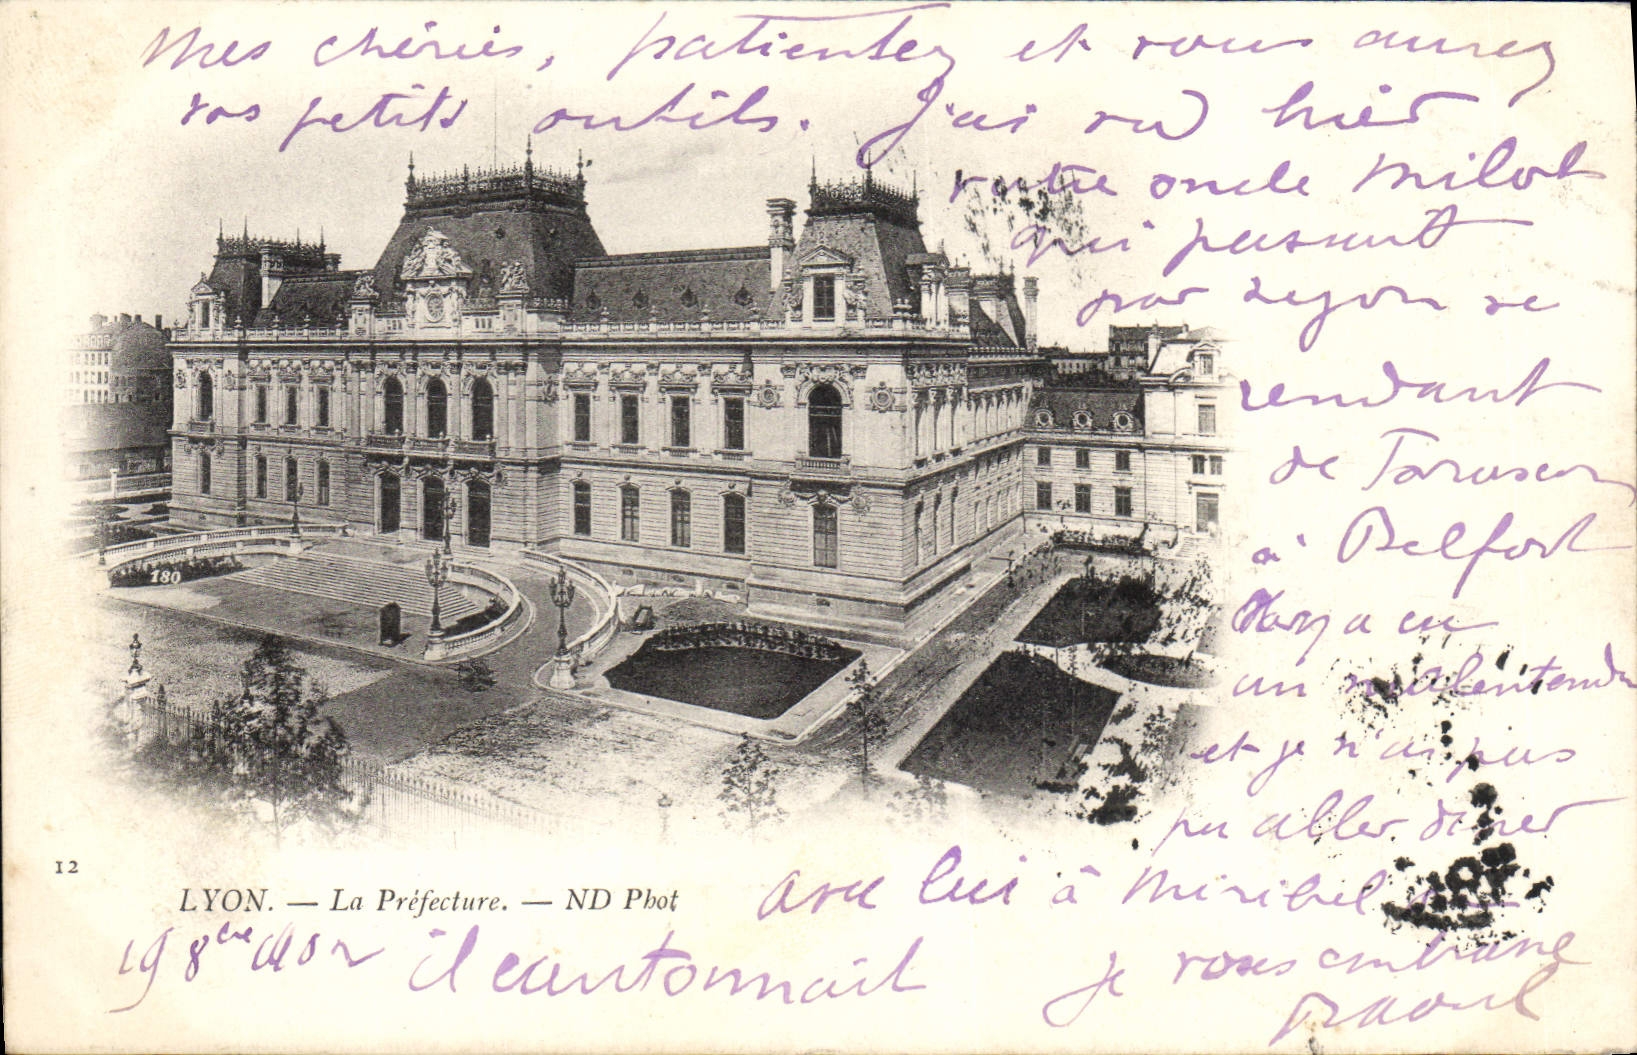 Mes chéries, patientez et vous aurez
vos petits outils. J'ai vu hier
votre oncle Milot
qui passant
par Lyon se
rendant
de Tarascon
à Belfort
Il y a eu
un malentendu
et je n'ai pas
pu aller diner
avec lui à Miribel où
il cantonnait
je vous embrasse
Raoul
19 8bre 1902
180
12
LYON. — La Préfecture. — ND Phot